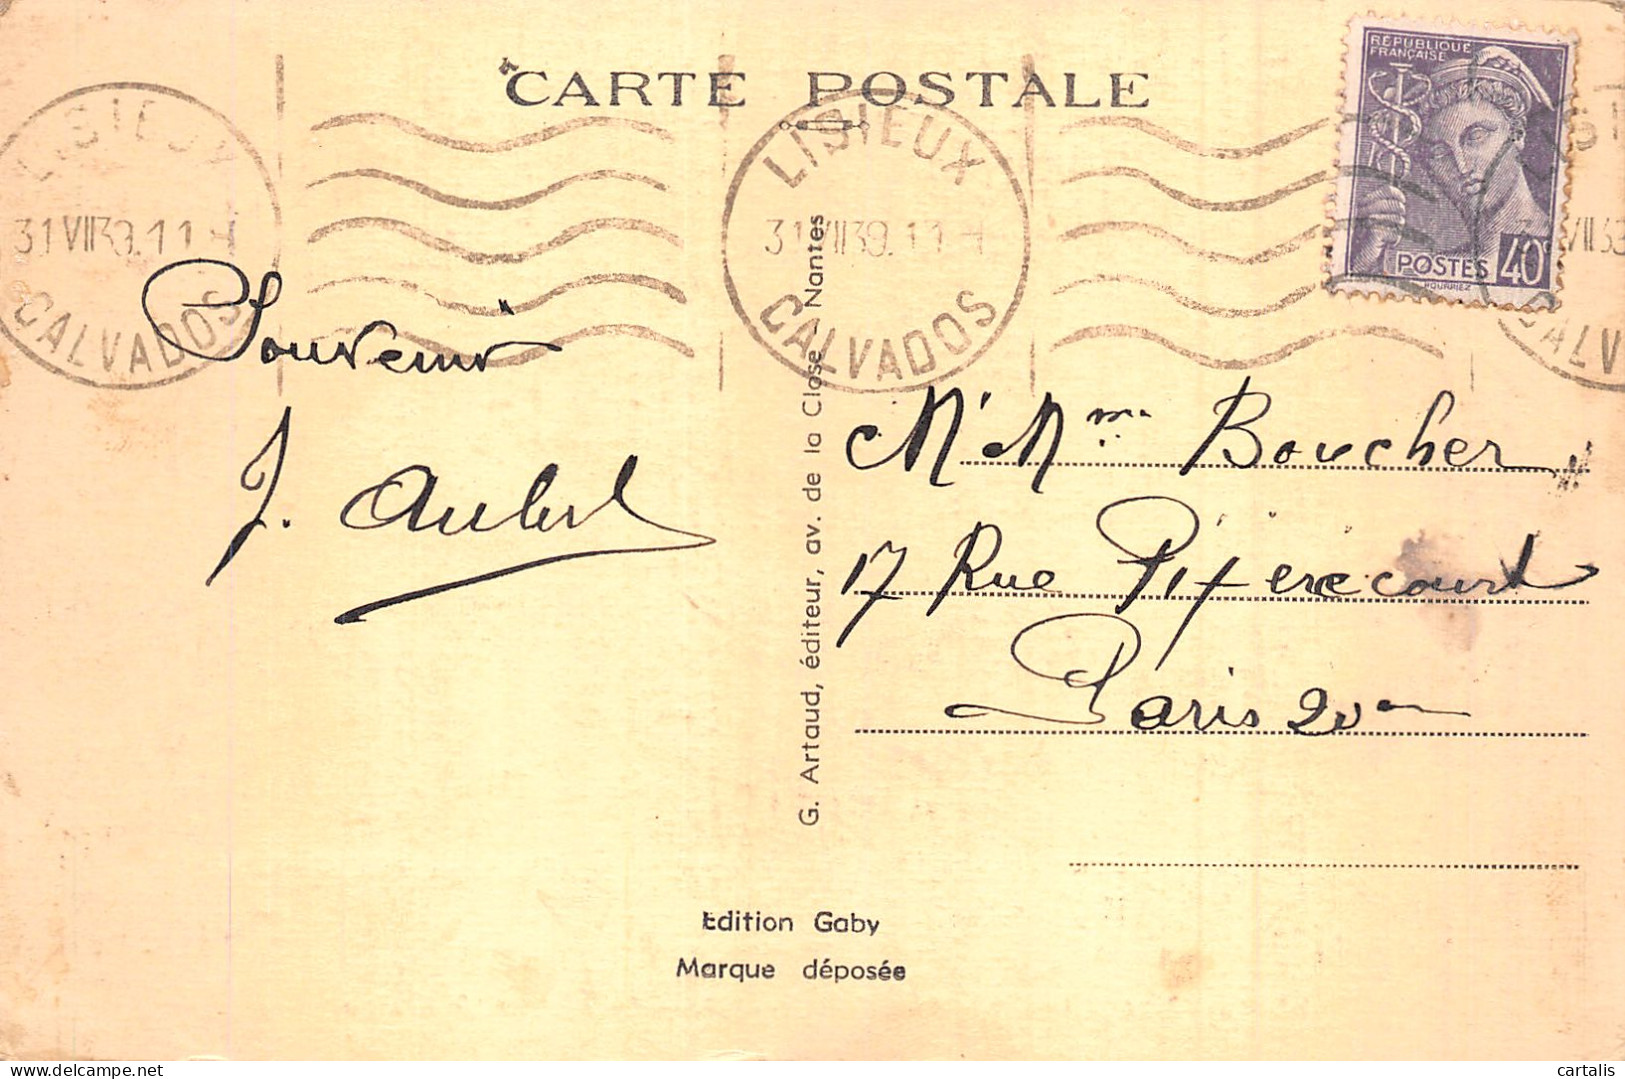 CARTE POSTALE
LISIEUX
31 VII 39. 11 H
CALVADOS
LISIEUX
31 VII 39. 11 H
CALVADOS
RÉPUBLIQUE
FRANÇAISE
POSTES 40c
HOURRIEZ
Souvenir
J. Aubert
G. Artaud, éditeur, av. de la Close - Nantes
Mr Mme Boucher
17 Rue Pixérécourt
Paris 20em
Edition Gaby
Marque déposée
delcampe.net
cartalis